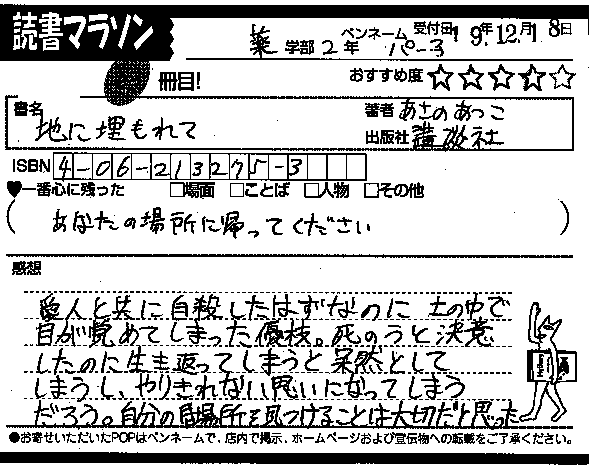 読書マラソン
薬学部2年 ペンネーム パーヨ 受付日19年12月18日
冊目! おすすめ度 ☆☆☆☆☆
書名 地に埋もれて
著者 あさのあつこ
出版社 講談社
ISBN 4-06-213275-3
♥一番心に残った □場面 □ことば □人物 □その他
(あなたの場所に帰ってください)
感想
愛人と共に自殺したはずなのに 土の中で
目が覚めてしまった優枝。死のうと決意
したのに生き返ってしまうと呆然として
しまうし、やりきれない思いになってしまう
だろう。自分の居場所を見つけることは大切だと思った
●お寄せいただいたPOPはペンネームで、店内で掲示、ホームページおよび宣伝物への転載をご了承ください。